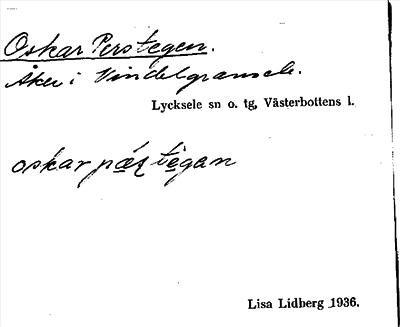 Oskar Perstegen.
Åker i Vindelgransele.
Lycksele sn o. tg, Västerbottens l.
oskar pæ̣ʂ tègan
Lisa Lidberg 1936.